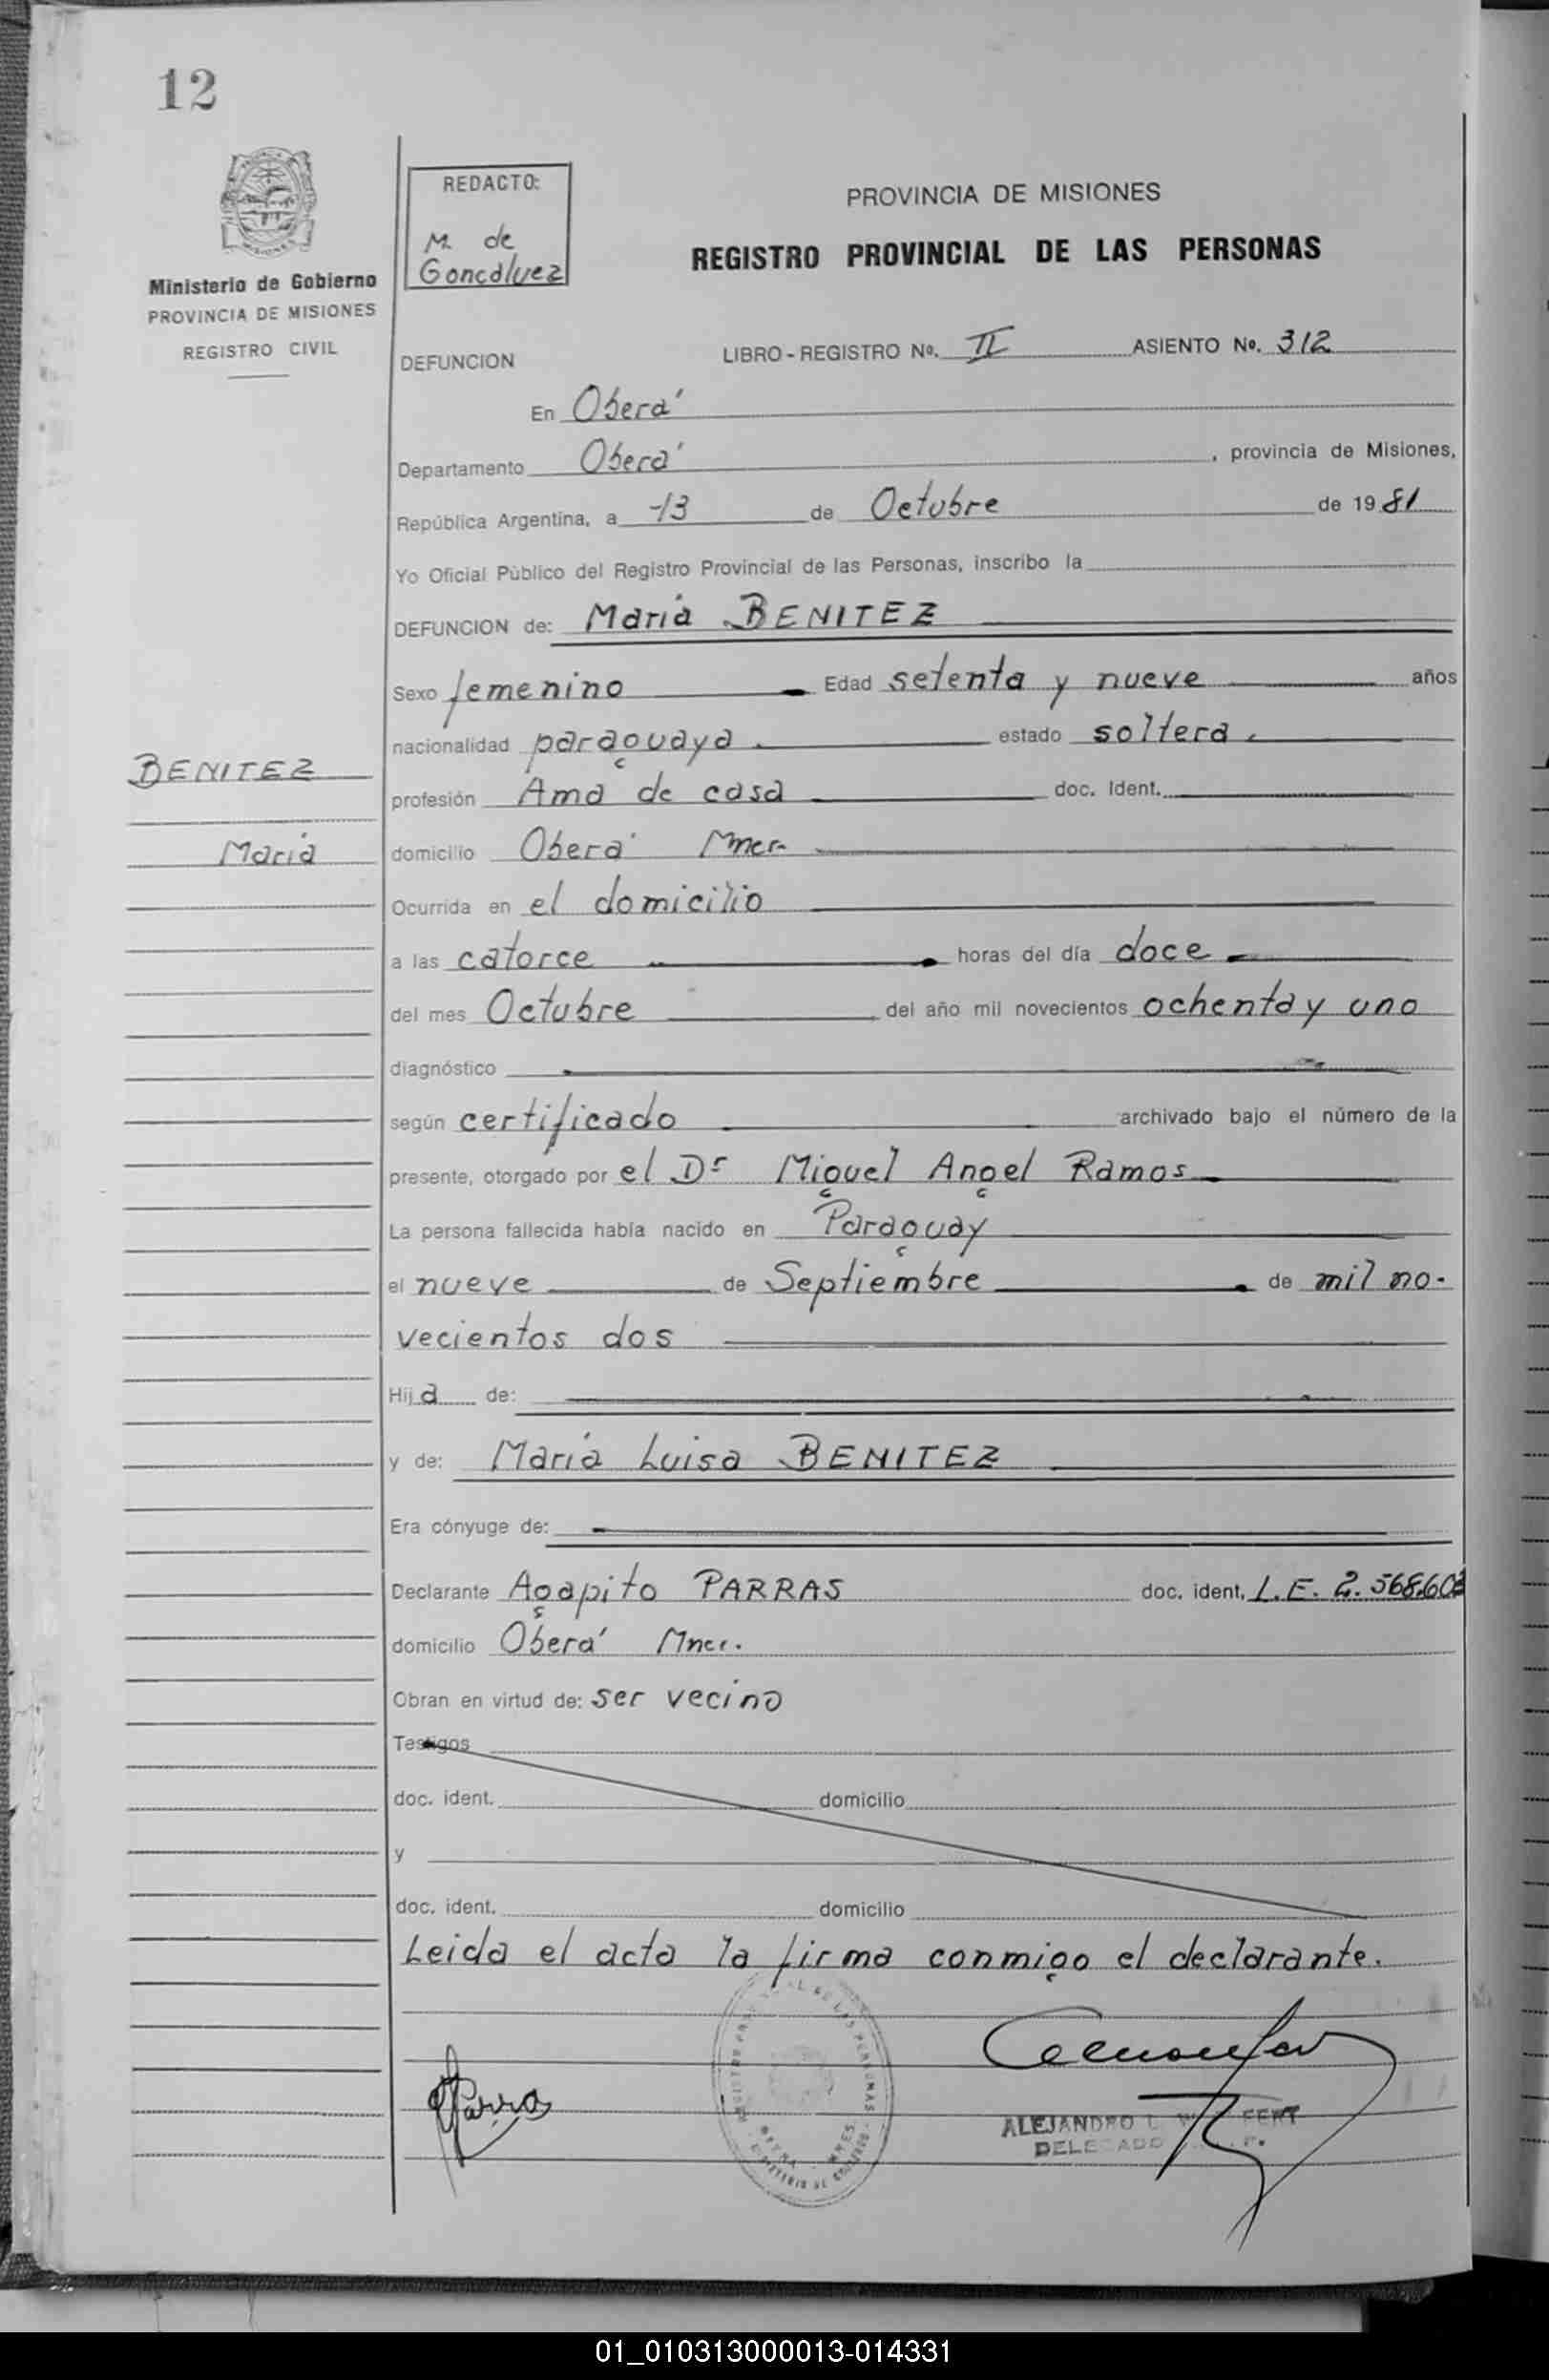 12
REDACTO:
M. de
Goncalvez
PROVINCIA DE MISIONES
REGISTRO PROVINCIAL DE LAS PERSONAS
Ministerio de Gobierno
PROVINCIA DE MISIONES
REGISTRO CIVIL
DEFUNCION LIBRO - REGISTRO Nº. II ASIENTO Nº. 312
En Oberá
Departamento Oberá , provincia de Misiones,
República Argentina, a 13 de Octubre de 1981
Yo Oficial Público del Registro Provincial de las Personas, inscribo la
DEFUNCION de: María BENITEZ
Sexo femenino Edad setenta y nueve años
nacionalidad paraguaya. estado soltera.
BENITEZ
profesión Ama de casa doc. Ident.
María
domicilio Oberá Mnes.
Ocurrida en el domicilio
a las catorce horas del día doce
del mes Octubre del año mil novecientos ochenta y uno
diagnóstico
según certificado archivado bajo el número de la
presente, otorgado por el Dr Miguel Angel Ramos
La persona fallecida había nacido en Paraguay
el nueve de Septiembre de mil no-
vecientos dos
Hija de:
y de: María Luisa BENITEZ
Era cónyuge de:
Declarante Agapito PARRAS doc. ident. L.E. 2.568.603
domicilio Oberá Mnes.
Obran en virtud de: ser vecino
Testigos
doc. ident. domicilio
y
doc. ident. domicilio
Leida el acta la firma conmigo el declarante.
Parra
ALEJANDRO L.
DELEGADO
01_010313000013-014331